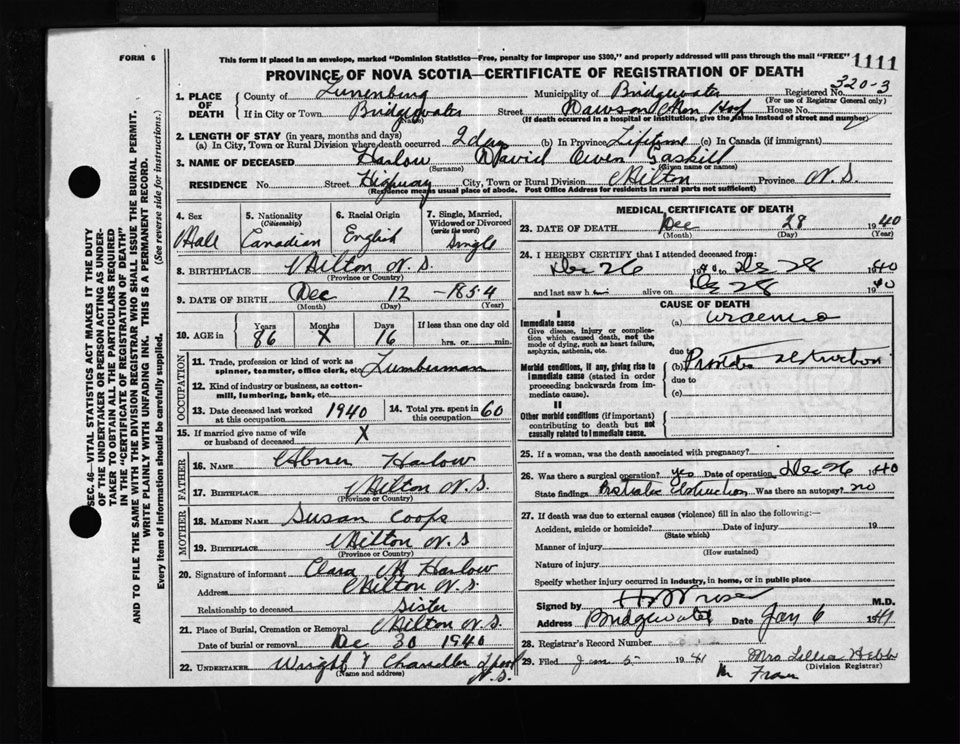 FORM 6
This form if placed in an envelope, marked "Dominion Statistics—Free, penalty for improper use $300," and properly addressed will pass through the mail "FREE"
1111
PROVINCE OF NOVA SCOTIA—CERTIFICATE OF REGISTRATION OF DEATH
320-3
1. PLACE OF DEATH
County of Lunenburg Municipality of Bridgewater Registered No.
(For use of Registrar General only)
If in City or Town Bridgewater Street Dawson Mem Hosp House No.
(Name) (If death occurred in a hospital or institution, give the name instead of street and number)
2. LENGTH OF STAY (in years, months and days)
(a) In City, Town or Rural Division where death occurred 2 days (b) In Province Lifetime (c) In Canada (if immigrant)
3. NAME OF DECEASED Harlow David Owen Gaskill
(Surname) (Given name or names)
RESIDENCE No. Street Highway City, Town or Rural Division Milton Province N.S.
(Residence means usual place of abode. Post Office Address for residents in rural parts not sufficient)
4. Sex
Male
5. Nationality
(Citizenship)
Canadian
6. Racial Origin
English
7. Single, Married, Widowed or Divorced
(write the word)
Single
8. BIRTHPLACE Milton N.S.
(Province or Country)
9. DATE OF BIRTH Dec 12 -1854
(Month) (Day) (Year)
10. AGE in
Years Months Days If less than one day old
86 X 16 hrs. or min.
OCCUPATION
11. Trade, profession or kind of work as
spinner, teamster, office clerk, etc. Lumberman
12. Kind of industry or business, as cotton-
mill, lumbering, bank, etc.
13. Date deceased last worked
at this occupation 1940
14. Total yrs. spent in
this occupation 60
15. If married give name of wife
or husband of deceased X
FATHER
16. NAME Abner Harlow
17. BIRTHPLACE Milton N.S.
(Province or Country)
MOTHER
18. MAIDEN NAME Susan Coops
19. BIRTHPLACE Milton N.S
(Province or Country)
20. Signature of informant Clara M Harlow
Address Milton N.S.
Relationship to deceased Sister
21. Place of Burial, Cremation or Removal Milton N.S.
Date of burial or removal Dec 30 1940
22. UNDERTAKER Wright & Chandler
N.S.
(Name and address)
MEDICAL CERTIFICATE OF DEATH
23. DATE OF DEATH Dec 28 1940
(Month) (Day) (Year)
24. I HEREBY CERTIFY that I attended deceased from:
Dec 26 1940 to Dec 28 1940
and last saw h alive on Dec 28 1940
CAUSE OF DEATH
I
Immediate cause
Give disease, injury or complication which caused death, not the mode of dying, such as heart failure, asphyxia, asthenia, etc.
(a) Uraemia
due to
Morbid conditions, if any, giving rise to immediate cause (stated in order proceeding backwards from immediate cause).
(b) Prostatic obstruction
due to
(c)
II
Other morbid conditions (if important) contributing to death but not causally related to immediate cause.
25. If a woman, was the death associated with pregnancy?
26. Was there a surgical operation? yes Date of operation Dec 26 1940
State findings Prostatic Obstruction Was there an autopsy? no
27. If death was due to external causes (violence) fill in also the following:—
Accident, suicide or homicide? Date of injury 19
(State which)
Manner of injury
(How sustained)
Nature of injury
Specify whether injury occurred in industry, in home, or in public place
Signed by M.D.
Address Bridgewater Date Jan 6 1941
28. Registrar's Record Number
29. Filed Jan 5 1941 Mrs Lillia Hebb
(Division Registrar)
SEC. 46—VITAL STATISTICS ACT MAKES IT THE DUTY
OF THE UNDERTAKER OR PERSON ACTING AS UNDER-
TAKER TO OBTAIN ALL THE PARTICULARS REQUIRED
IN THE "CERTIFICATE OF REGISTRATION OF DEATH"
AND TO FILE THE SAME WITH THE DIVISION REGISTRAR WHO SHALL ISSUE THE BURIAL PERMIT.
WRITE PLAINLY WITH UNFADING INK. THIS IS A PERMANENT RECORD.
Every item of information should be carefully supplied. (See reverse side for instructions.)